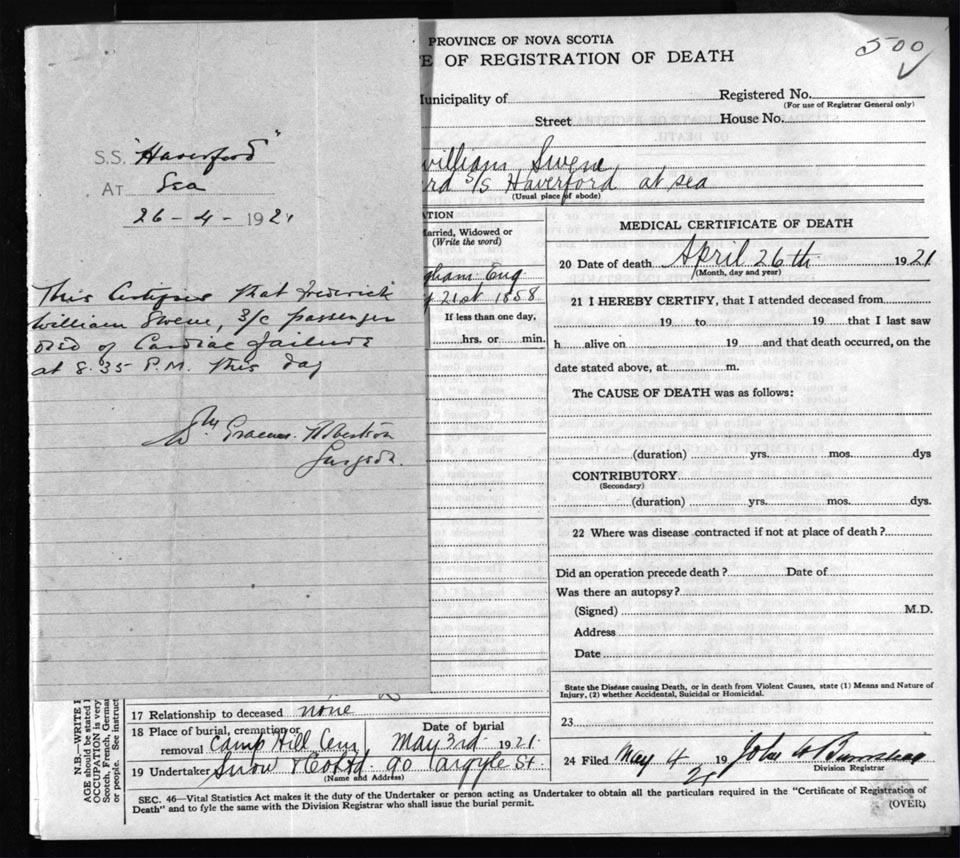 PROVINCE OF NOVA SCOTIA
E OF REGISTRATION OF DEATH
500
unicipality of
Registered No.
(For use of Registrar General only)
Street
House No.
william Swene
rd S/S Haverford at sea
(Usual place of abode)
S.S. "Haverford"
AT Sea
26-4-1921
This Certifies that Frederick
William Swene, 3/c passenger
died of Cardiac failure
at 8.35 P.M. this day
Wm Graeme Robertson
Surgeon.
ATION
arried, Widowed or
(Write the word)
gham Eng
21st 1858
If less than one day,
hrs. or min.
MEDICAL CERTIFICATE OF DEATH
20 Date of death April 26th 1921
(Month, day and year)
21 I HEREBY CERTIFY, that I attended deceased from
19 to 19 that I last saw
h alive on 19 and that death occurred, on the
date stated above, at m.
The CAUSE OF DEATH was as follows:
(duration) yrs. mos. dys
CONTRIBUTORY
(Secondary)
(duration) yrs. mos. dys.
22 Where was disease contracted if not at place of death?
Did an operation precede death? Date of
Was there an autopsy?
(Signed) M.D.
Address
Date
State the Disease causing Death, or in death from Violent Causes, state (1) Means and Nature of
Injury, (2) whether Accidental, Suicidal or Homicidal.
23
24 Filed May 4 1921 John
Division Registrar
N.B.—WRITE
AGE should be stated
OCCUPATION is very
Scotch, French, German
or people. See instruct
17 Relationship to deceased none
18 Place of burial, cremation or
removal Camp Hill Cem
Date of burial
May 3rd 1921
19 Undertaker Snow & Co Ltd. 90 Argyle St.
(Name and Address)
SEC. 46—Vital Statistics Act makes it the duty of the Undertaker or person acting as Undertaker to obtain all the particulars required in the "Certificate of Registration of
Death" and to fyle the same with the Division Registrar who shall issue the burial permit.
(OVER)